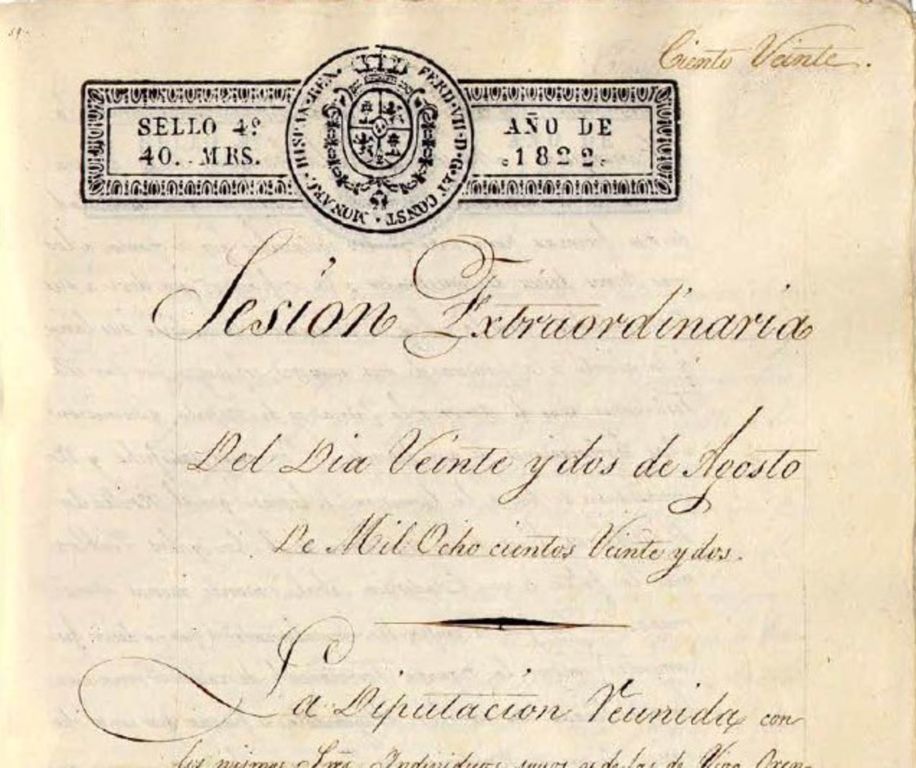 Ciento Veinte.
SELLO 4º
40. MRS.
FERD. VII. D. G. ET CONST. MONARC. HISPAN. REX.
AÑO DE
1822.
Sesion Extraordinaria
Del Dia Veinte y dos de Agosto
De Mil Ocho cientos Veinte y dos.
La Diputacion Reunida con
los mismos Sres Individuos suyos y de las de Vigo, Oren-